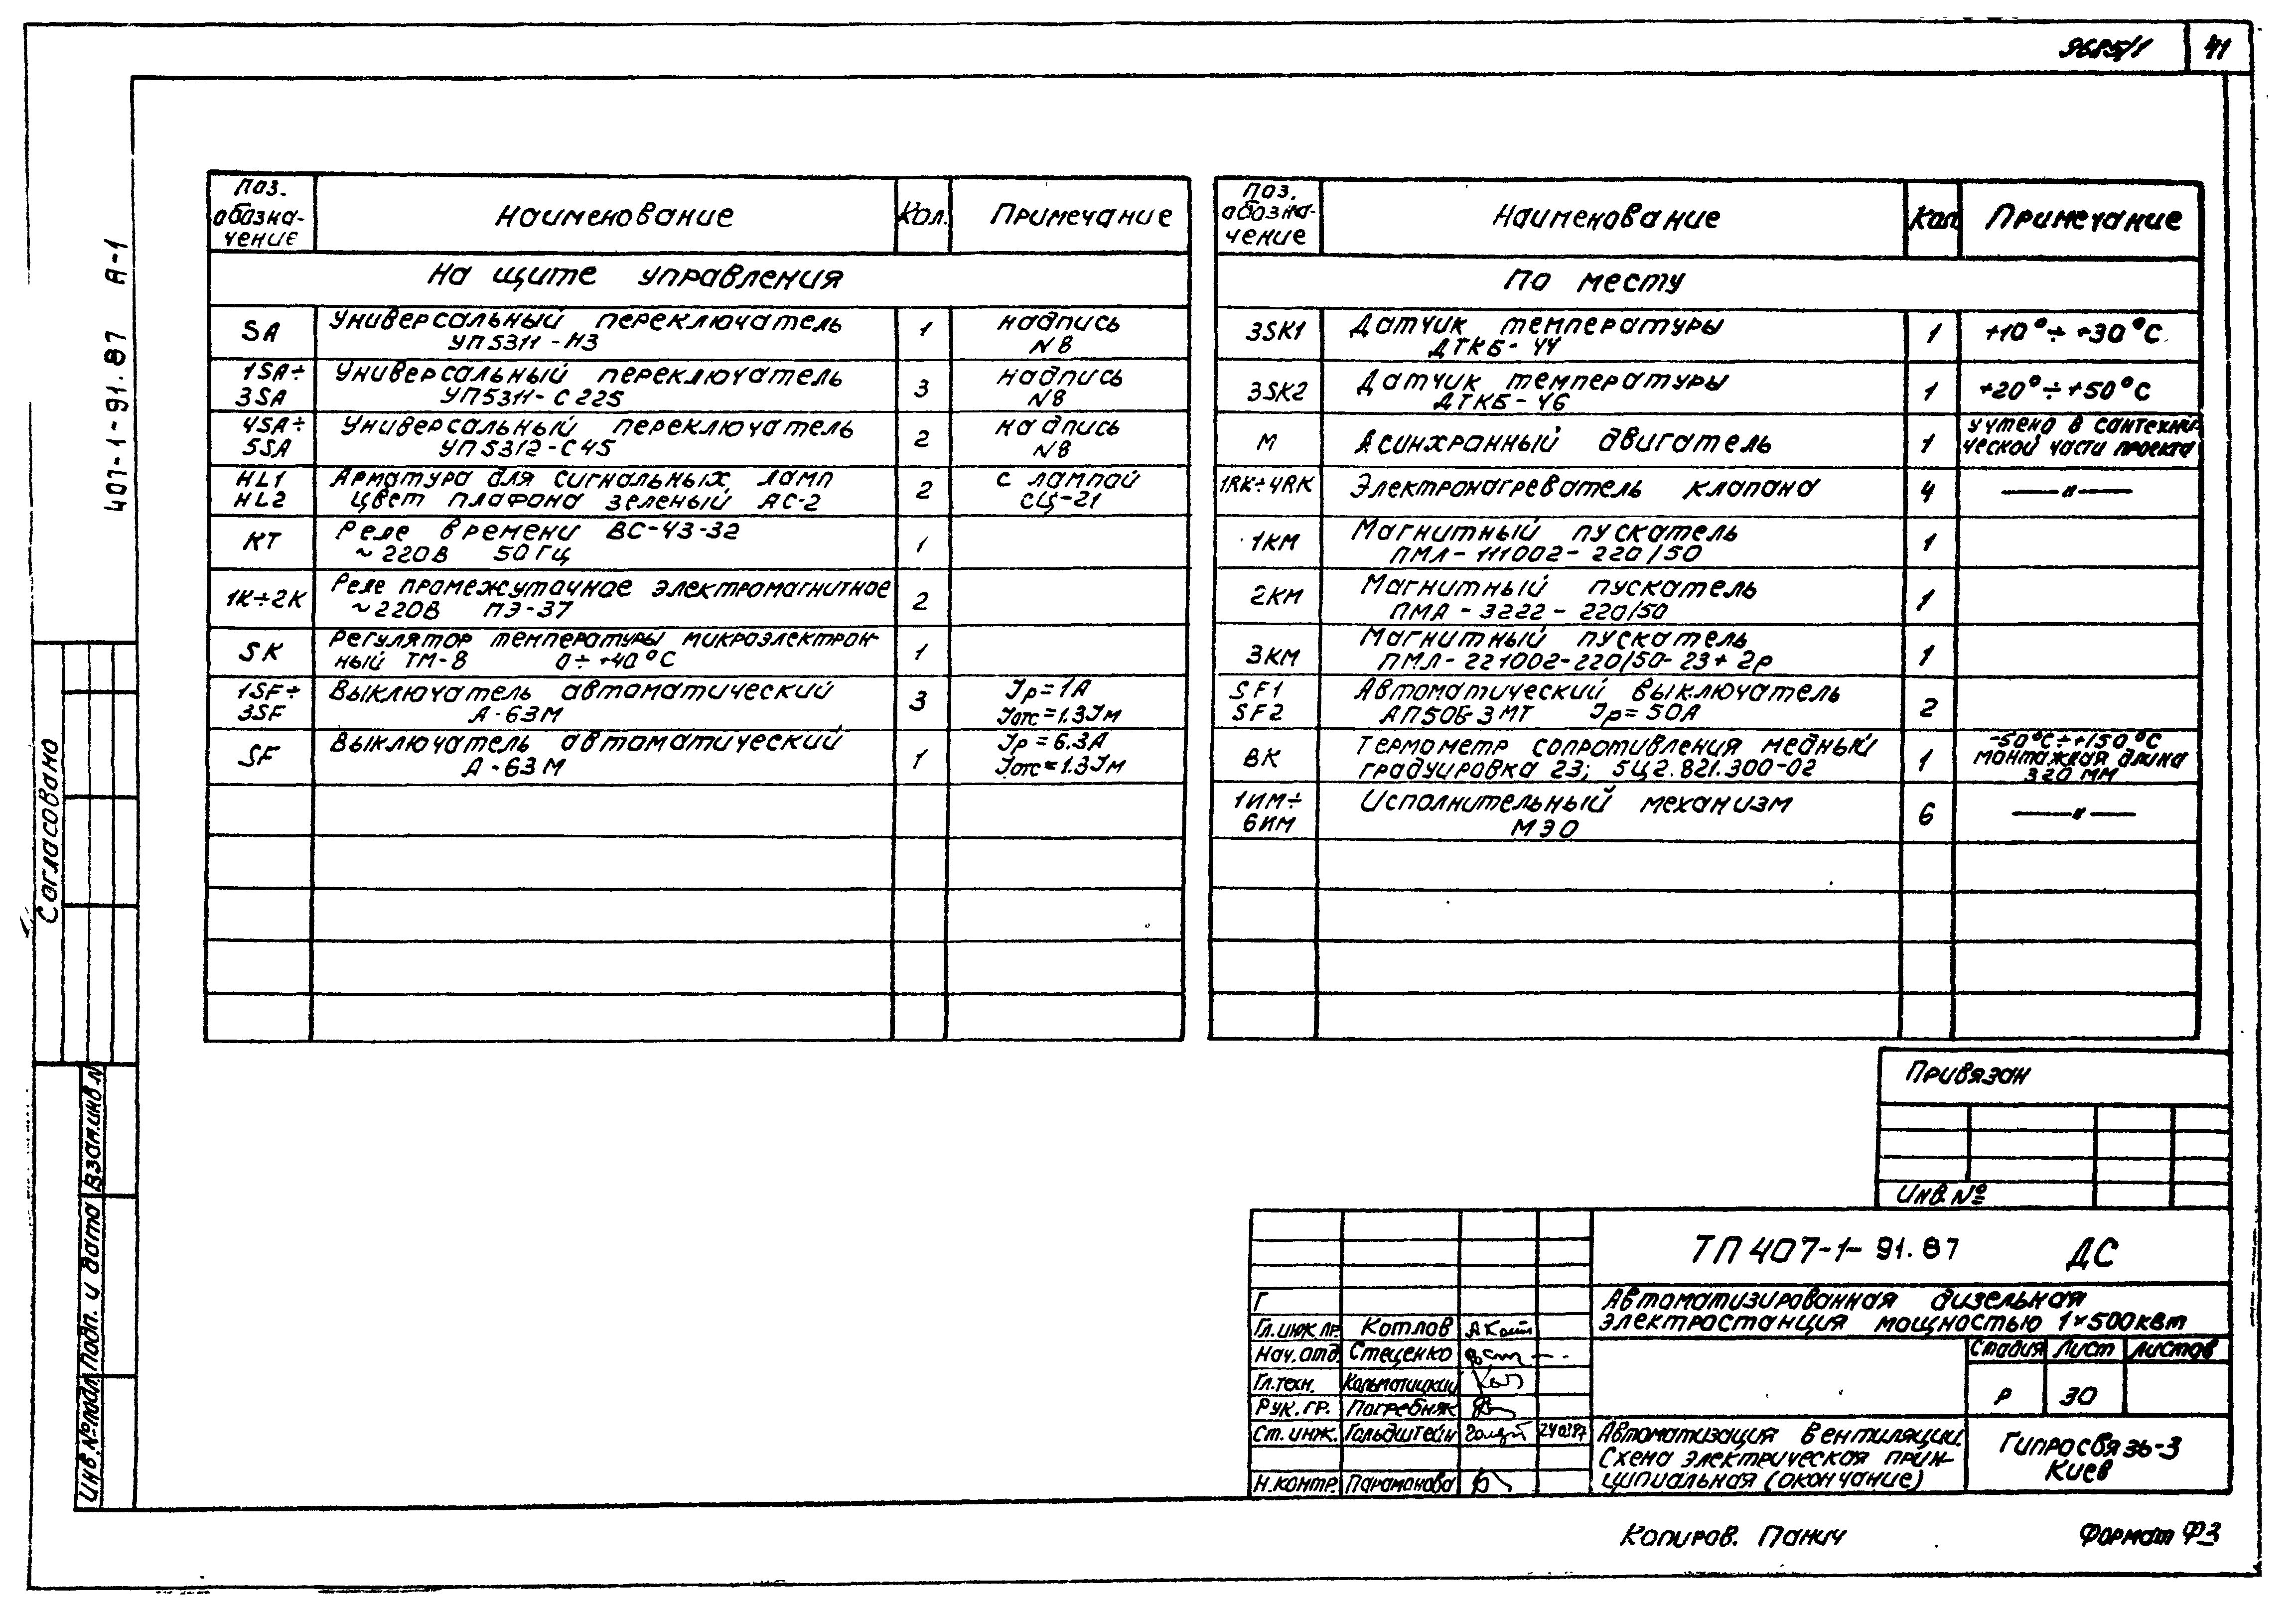 9685/1 41
407-1-91.87 А-1
Поз. обозна-чение Наименование Кол. Примечание
На щите управления
SA Универсальный переключатель 1 надпись
УП5311-Н3 N8
1SA÷ Универсальный переключатель 3 надпись
3SA УП5311-С225 N8
4SA÷ Универсальный переключатель 2 надпись
5SA УП5312-С45 N8
HL1 Арматура для сигнальных ламп 2 с лампой
HL2 цвет плафона зеленый АС-2 СЦ-21
КТ Реле времени ВС-43-32 1
~220В 50Гц
1К÷2К Реле промежуточное электромагнитное 2
~220В ПЭ-37
SK Регулятор температуры микроэлектрон- 1
ный ТМ-8 0÷+40°С
1SF÷ Выключатель автоматический 3 Jр=1А
3SF А-63М Jотс=1.3Jм
SF Выключатель автоматический 1 Jр=6.3А
А-63М Jотс=1.3Jм
Поз. обозна-чение Наименование Кол Примечание
По месту
3SK1 Датчик температуры 1 +10°÷+30°С
ДТКБ-44
3SK2 Датчик температуры 1 +20°÷+50°С
ДТКБ-46
М Асинхронный двигатель 1 учтено в сантехни-
ческой части проекта
1RK÷4RK Электронагреватель клапана 4 —"—
1КМ Магнитный пускатель 1
ПМЛ-111002-220/50
2КМ Магнитный пускатель 1
ПМА-3222-220/50
3КМ Магнитный пускатель 1
ПМЛ-221002-220/50-23+2р
SF1 Автоматический выключатель 2
SF2 АП50Б-3МТ Jр=50А
ВК Термометр сопротивления медный 1 -50°С÷+150°С
градуировка 23; 5Ц2.821.300-02 монтажная длина
320 мм
1ИМ÷ Исполнительный механизм 6 —"—
6ИМ МЭО
Согласовано
Взам.инв.N
Подп. и дата
Инв.№подл.
Привязан
Инв.№
ТП 407-1-91.87 ДС
Г
Автоматизированная дизельная
электростанция мощностью 1×500квт
Гл.инж.пр. Котлов
Нач.отд. Стеценко
Гл.техн. Кальмотицкий
Рук.гр. Погребняк
Ст.инж. Гольдштейн
Н.контр. Парамонова
Стадия Лист Листов
Р 30
Автоматизация вентиляции.
Схема электрическая прин-
ципиальная (окончание)
Гипросвязь-3
Киев
Копиров. Панич Формат Ф3